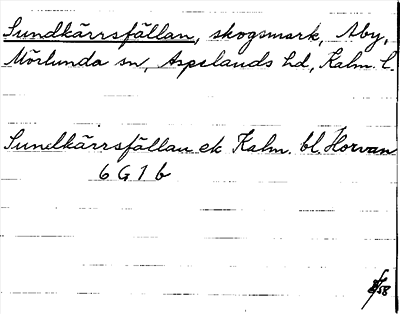 Sundkärrsfällan, skogsmark, Åby,
Mörlunda sn, Aspelands hd, Kalm. l.
Sundkärrsfällan ek Kalm. bl. Horvan
6 G 1 b